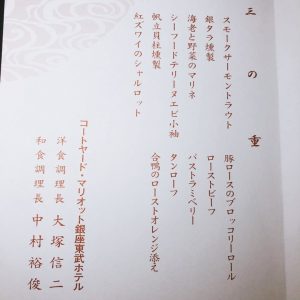 三の重
スモークサーモントラウト
銀タラ燻製
海老と野菜のマリネ
シーフードテリーヌエビ小袖
帆立貝柱燻製
紅ズワイのシャルロット
豚ロースのブロッコリーロール
ローストビーフ
パストラミベリー
タンローフ
合鴨のローストオレンジ添え
コートヤード・マリオット銀座東武ホテル
洋食調理長 大塚信二
和食調理長 中村裕俊